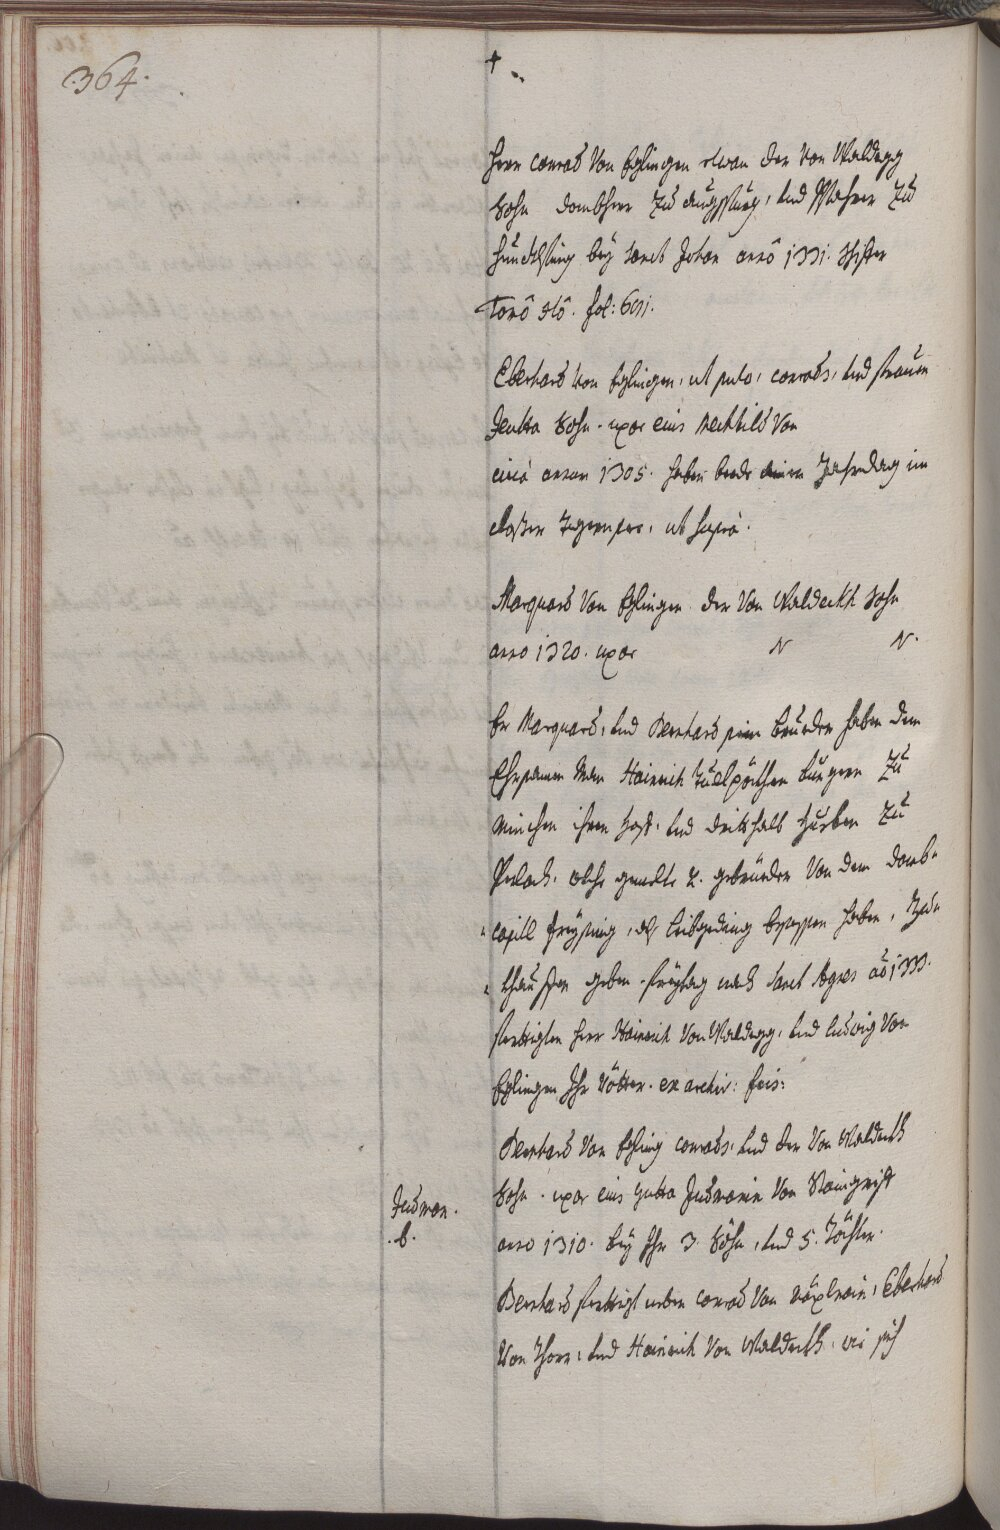 .364.
+
Herr Conrad Von Eglingen etwan der Von Waldegg
Sohn Dombherr Zu Augspurg, und Pfahrer Zu
bey Sanct Johan anno 1331.
Tomo fol: 601.
Eberhard Von Eglingen, ut puto, Conrads, und frauen
Jeutta Sohn. uxor eius Mechtild Von
circa annum 1305. haben beede einen Jahrdag im
Closter Tegernsee, ut supra.
Marquard Von Eglingen der Von Waldeckh Sohn
anno 1320. uxor N N.
Er Marquard, und Bernhard sein Brueder haben dem
Ehrsamen Man Hainrich burgern Zu
München ihren Hoff, und drithalb Hueben Zu
Perlach, welche gemelte 2. gebrüeder Von dem Domb-
capitl Freysing, als leibgeding besessen haben,
geben freytag nach Sanct Agnes ao 1333.
ferttigten Herr Hainrich Von Waldegg, und ludwig Von
Eglingen Ihr Vötter. ex archiv: fris:
Bernhard Von Egling Conrads, und der Von Waldeckh
Sohn. uxor eius Jutta Judmanin Von Staingriff
Judman.
.b.
anno 1310. bey Ihr 3. Söhn, und 5. Töchter.
Bernhard ferttigt neben Conrad Von , Eberhard
Von Thor, und Hainrich Von Waldeckh, wie sich